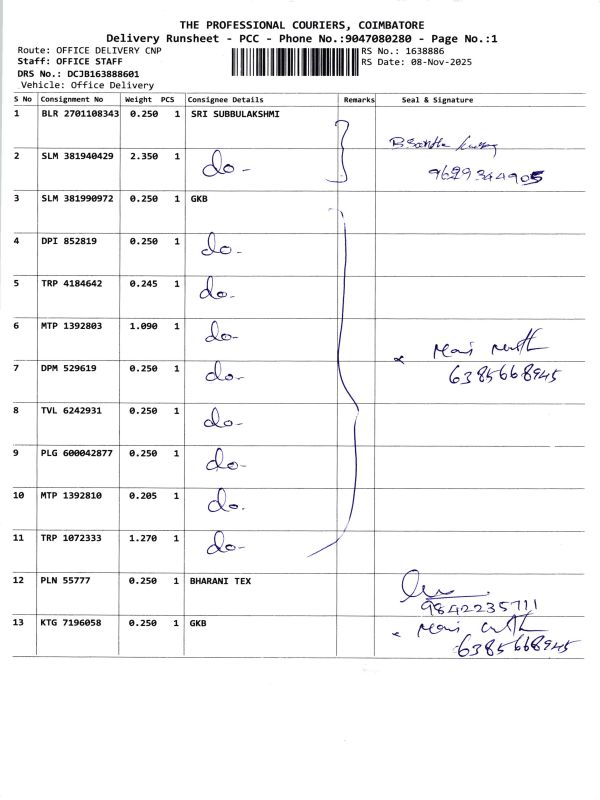 THE PROFESSIONAL COURIERS, COIMBATORE
Delivery Runsheet - PCC - Phone No.:9047080280 - Page No.:1
Route: OFFICE DELIVERY CNP RS No.: 1638886
Staff: OFFICE STAFF RS Date: 08-Nov-2025
DRS No.: DCJB163888601
Vehicle: Office Delivery
S No Consignment No Weight PCS Consignee Details Remarks Seal & Signature
1 BLR 2701108343 0.250 1 SRI SUBBULAKSHMI
2 SLM 381940429 2.350 1 do-
9629344905
3 SLM 381990972 0.250 1 GKB
4 DPI 852819 0.250 1 do-
5 TRP 4184642 0.245 1 do-
6 MTP 1392803 1.090 1 do-
7 DPM 529619 0.250 1 do-
6385668945
8 TVL 6242931 0.250 1 do-
9 PLG 600042877 0.250 1 do-
10 MTP 1392810 0.205 1 do.
11 TRP 1072333 1.270 1 do-
12 PLN 55777 0.250 1 BHARANI TEX
9842235711
13 KTG 7196058 0.250 1 GKB
6385668945